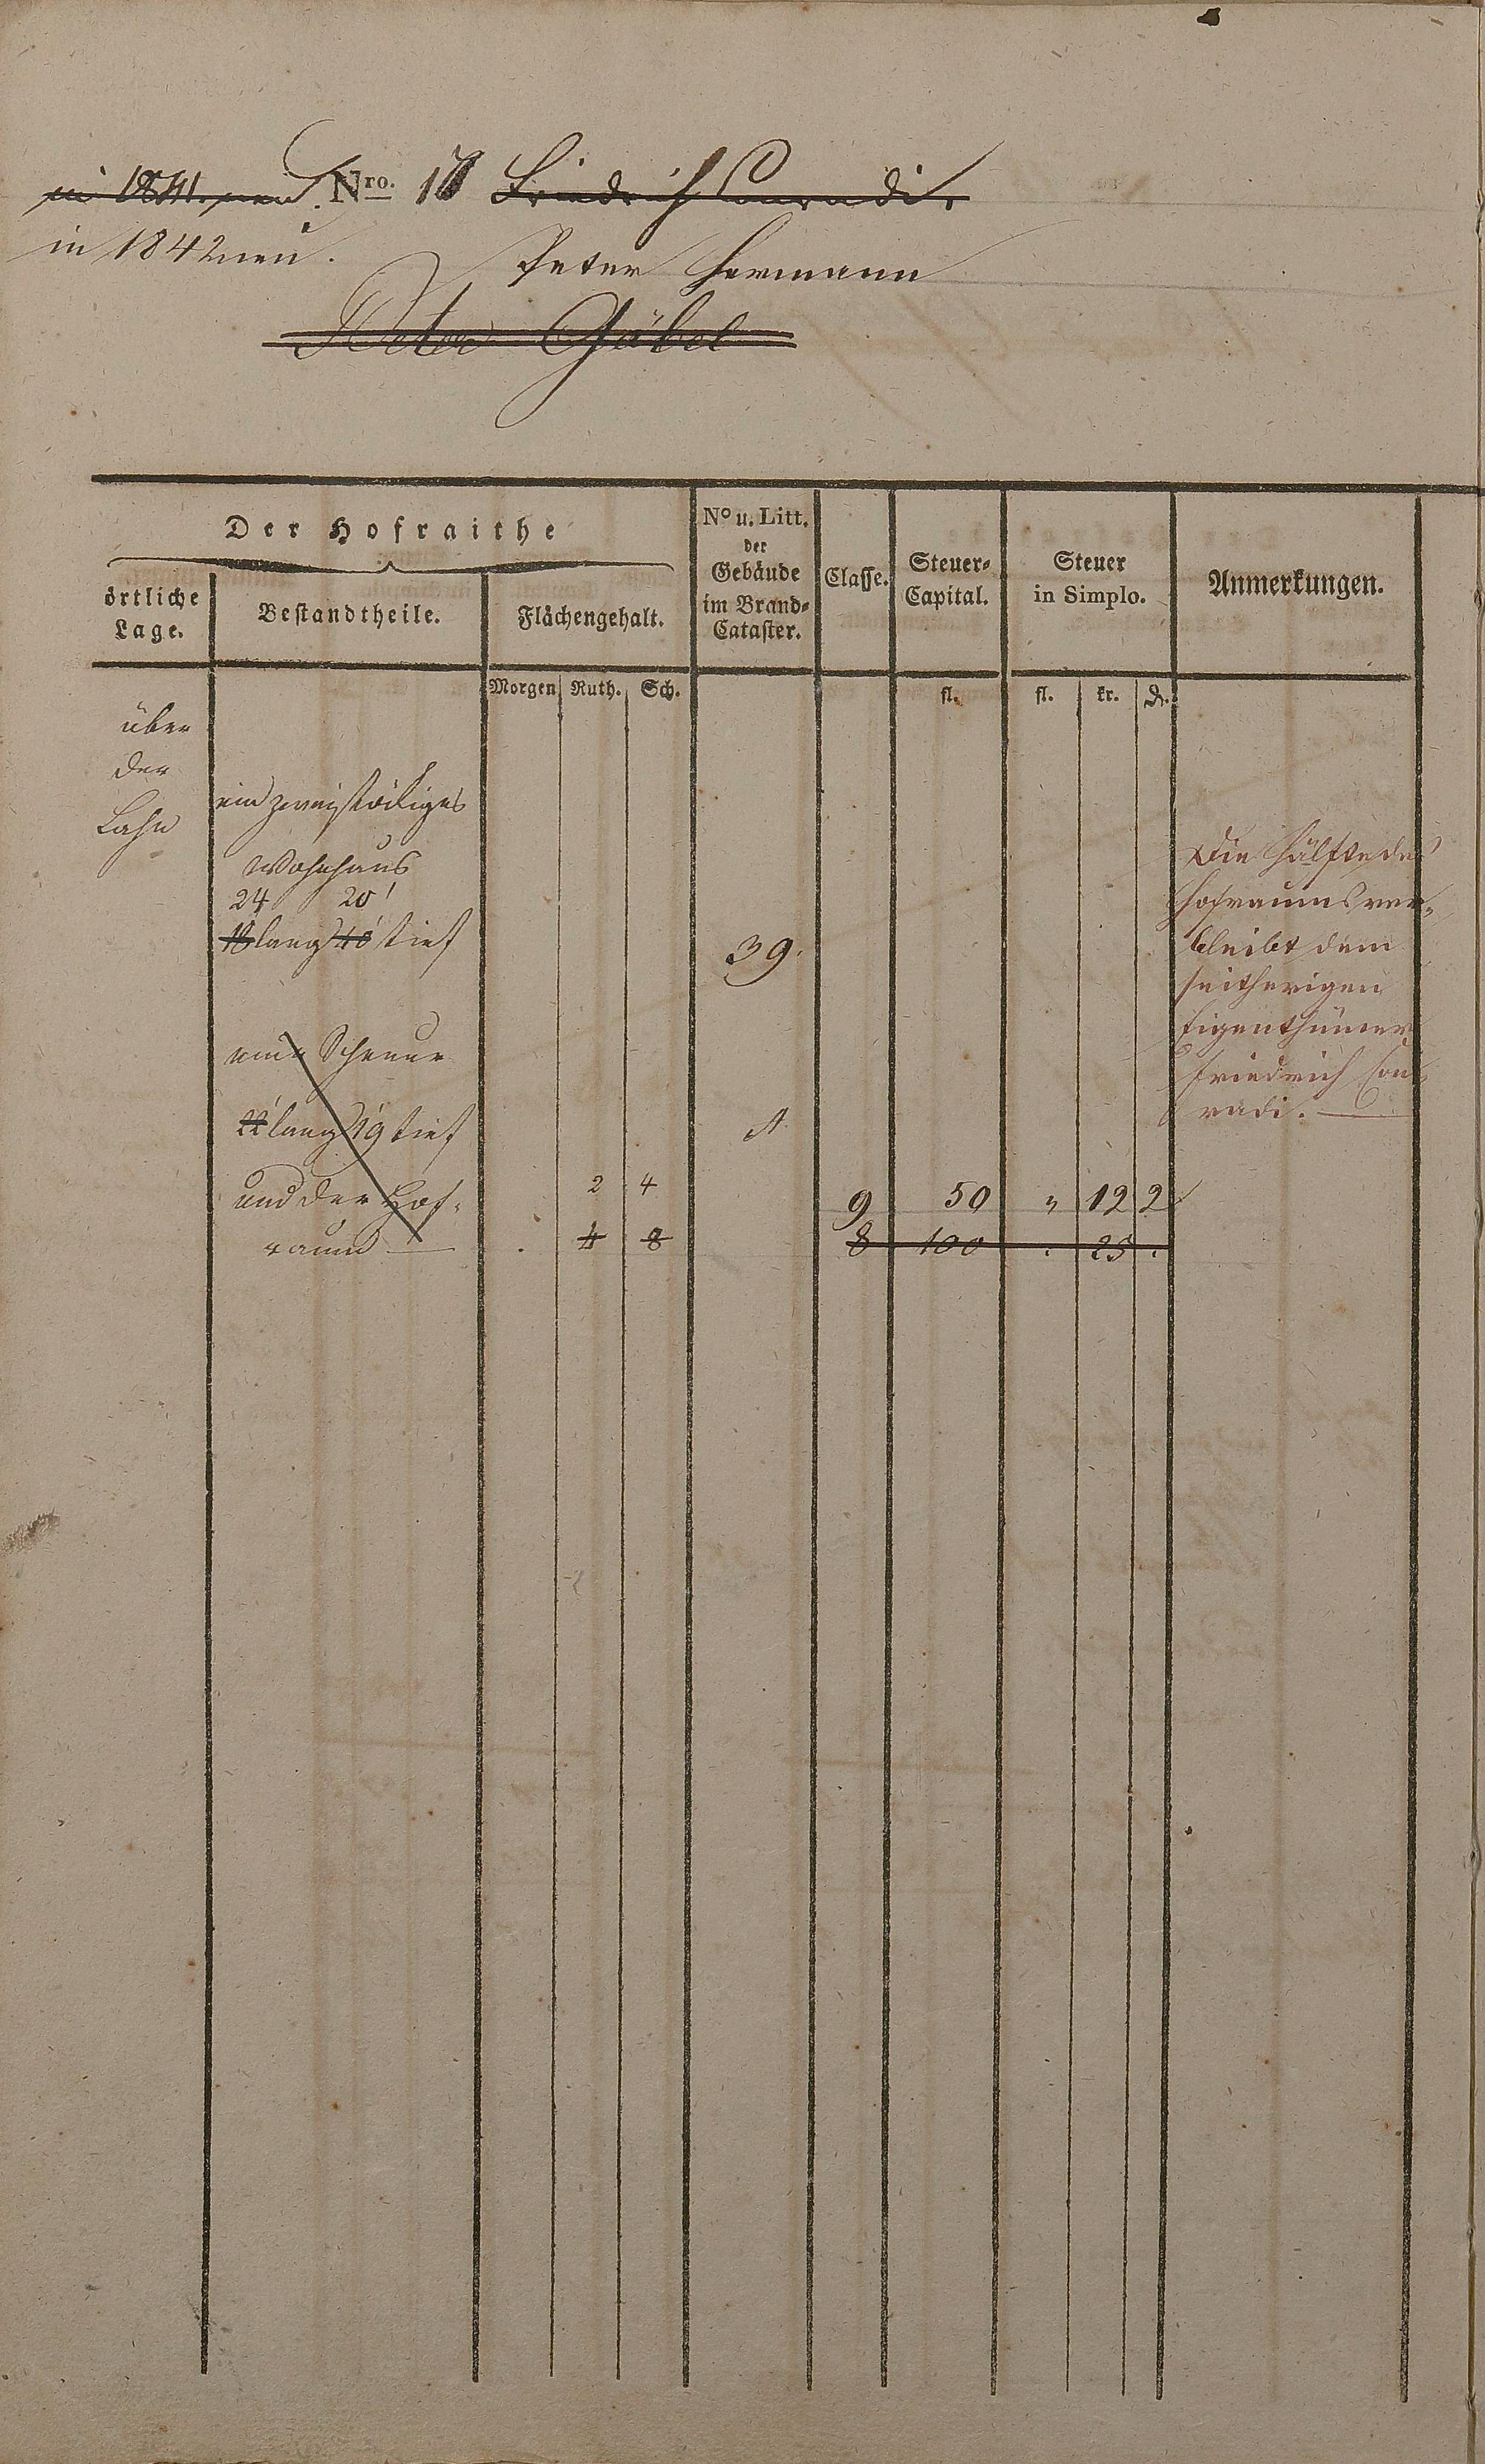 in 1841. neu. Nro. 17 Friedrich Conradi.
in 1842 neu. Peter Hermann
Peter Göbel
Der Hofraithe
örtliche Lage.
Bestandtheile.
Flächengehalt.
No u. Litt. der Gebäude im Brand-Cataster.
Classe.
Steuer-Capital.
Steuer in Simplo.
Anmerkungen.
Morgen Ruth. Sch. fl. fl. kr. d.
über
der
Lahn
ein zweistöckiges
Wohnhaus
24 20'
18 lang 40 tief
39.
eine Scheuer
22' lang 19 tief
A
und der Hof-
raum
2 4 9 50 " 12 2
. 4 8 8 100 . 25 .
Die Hälfte des
Hofraums ver-
bleibt dem
seitherigen
Eigenthümer
Friedrich Con
radi.